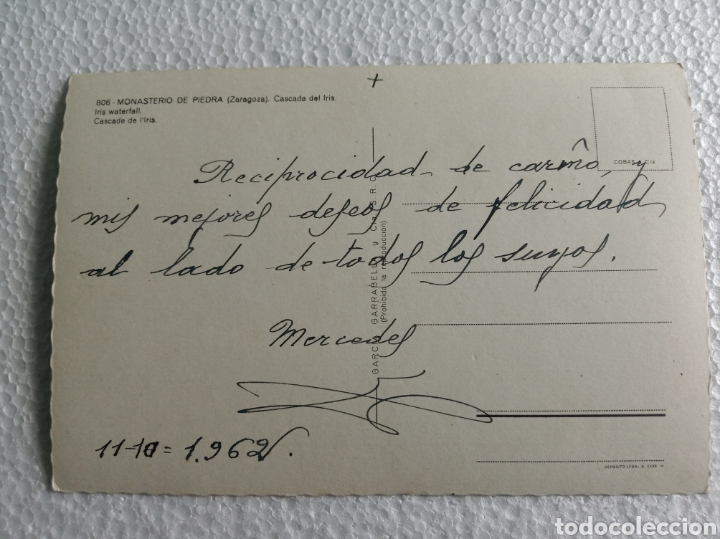 +
806 - MONASTERIO DE PIEDRA (Zaragoza). Cascada del Iris.
Iris waterfall.
Cascade de l'Iris.
Reciprocidad de cariño, y
mis mejores deseos de felicidad,
al lado de todos los suyos.
Mercedes
11-10=1.962.
GARCIA GARRABELLA Y CIA. S. R. C.
(Prohibida la reproducción)
DEPOSITO LEGAL B.
todocoleccion